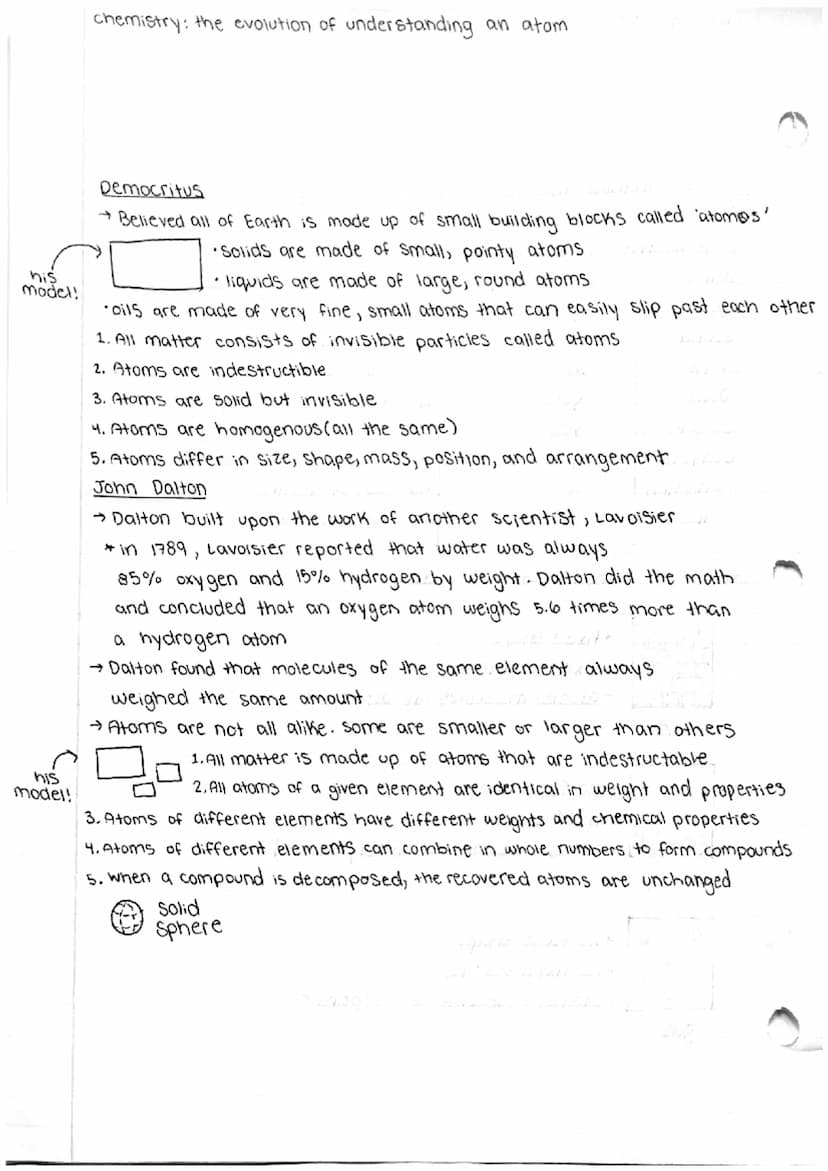 chemistry: the evolution of understanding an atom
Democritus
→ Believed all of Earth is made up of small building blocks called 'atomos'
• solids are made of small, pointy atoms
his model!
• liquids are made of large, round atoms
• oils are made of very fine, small atoms that can easily slip past each other
1. All matter consists of invisible particles called atoms
2. Atoms are indestructible
3. Atoms are solid but invisible
4. Atoms are homogenous (all the same)
5. Atoms differ in size, shape, mass, position, and arrangement
John Dalton
→ Dalton built upon the work of another scientist, Lavoisier
* in 1789, Lavoisier reported that water was always
85% oxygen and 15% hydrogen by weight. Dalton did the math
and concluded that an oxygen atom weighs 5.6 times more than
a hydrogen atom
→ Dalton found that molecules of the same element always
weighed the same amount
→ Atoms are not all alike. some are smaller or larger than others
1. All matter is made up of atoms that are indestructable
his model!
2. All atoms of a given element are identical in weight and properties
3. Atoms of different elements have different weights and chemical properties
4. Atoms of different elements can combine in whole numbers to form compounds
5. when a compound is decomposed, the recovered atoms are unchanged
solid
sphere